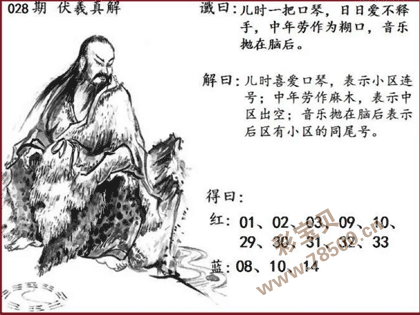 028期 伏羲真解
谶曰：儿时一把口琴，日日爱不释
手，中年劳作为糊口，音乐
抛在脑后。
解曰：儿时喜爱口琴，表示小区连
号；中年劳作麻木，表示中
区出空；音乐抛在脑后表示
后区有小区的同尾号。
得曰：
红：01、02、03、09、10、
29、30、31、32、33
蓝：08、10、14
彩宝贝
www.78500.cn